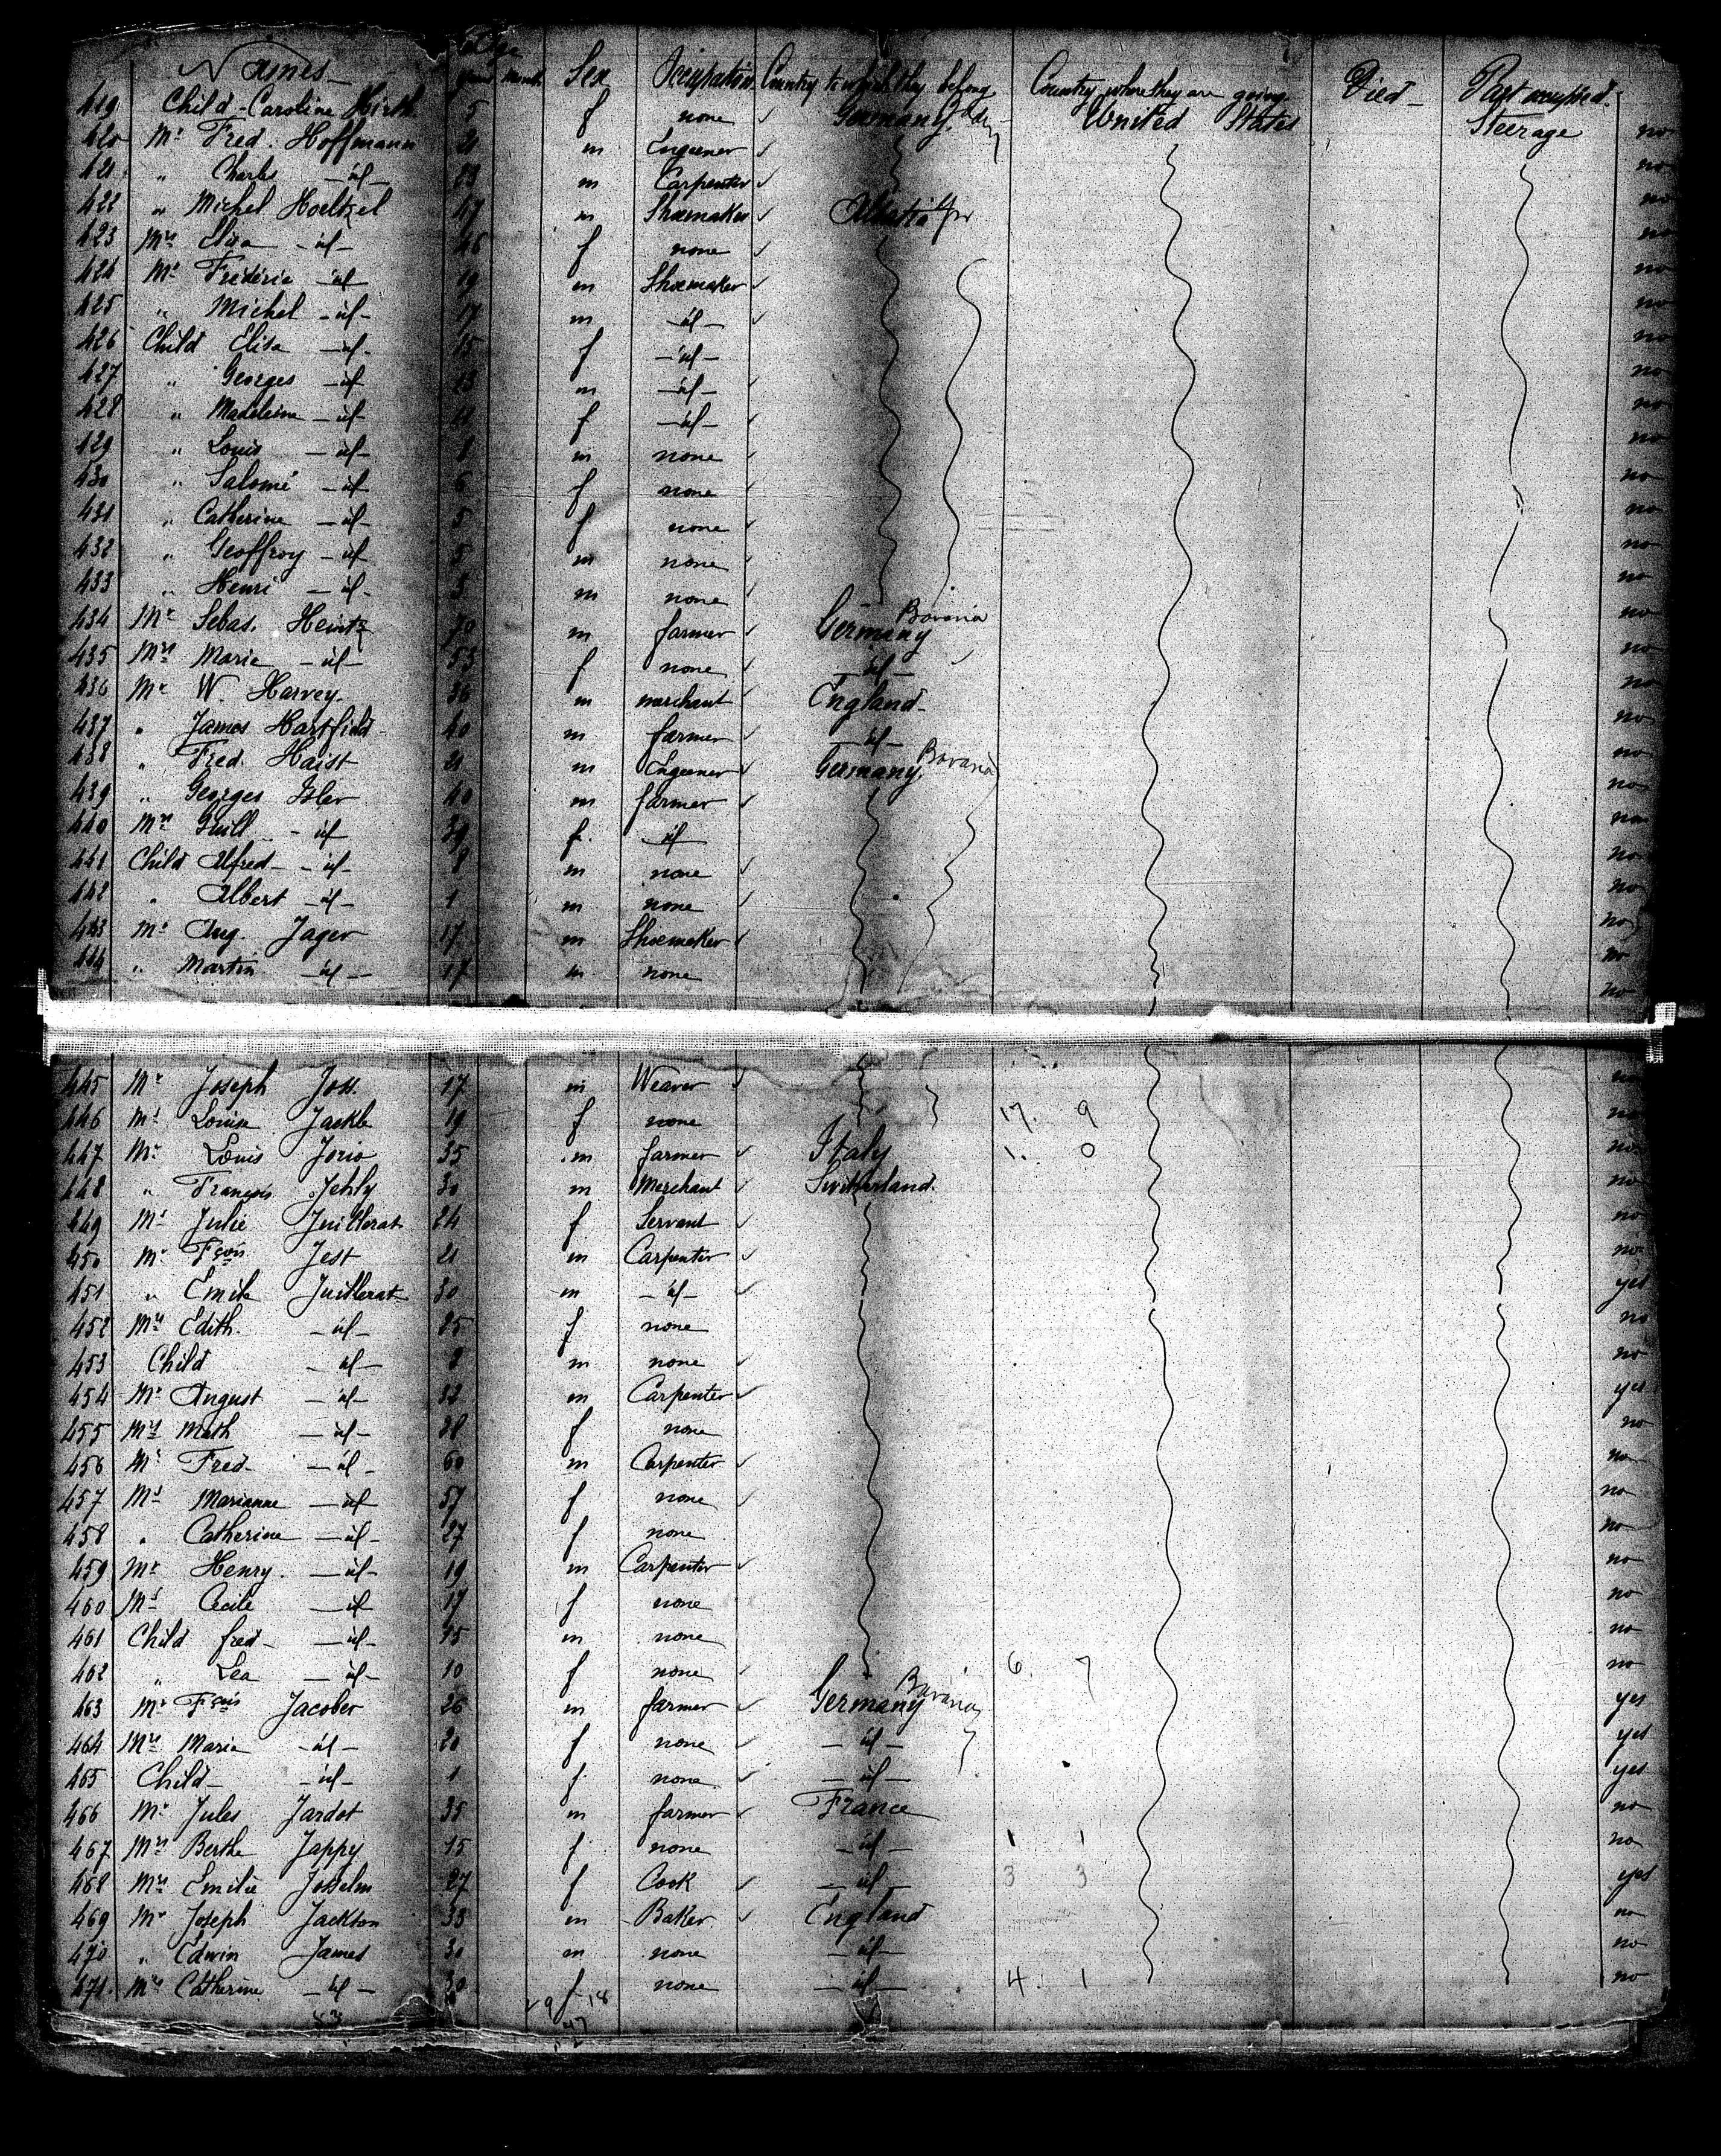 Names Age Sex Occupation Country to which they belong Country where they are going Died Part occupied.
years month
419 Child Caroline Hirth 5 f none Germany United States Steerage no
420 Mr Fred. Hoffmann 21 m Engeener no
421 " Charles -id- 29 m Carpenter no
422 " Michel Hoeltzel 47 m Shoemaker no
423 Mrs Elisa -id- 46 f none no
424 Mr Frédéric -id- 19 m Shoemaker no
425 " Michel -id- 17 m -id- no
426 Child Elisa -id- 15 f -id- no
427 " Georges -id- 13 m -id- no
428 " Madeleine -id- 11 f -id- no
429 " Louis -id- m none no
430 " Salomé -id- 6 f none no
431 " Catherine -id- 5 f none no
432 " Geoffroy -id- 5 m none no
433 " Henri -id- 5 m none no
434 Mr Sebas. Heintz m farmer Germany Bavaria no
435 Mrs Marie -id- 53 f none -id- no
436 Mr W. Harvey 36 m merchant England no
437 " James Hartfield 40 m farmer -id- no
438 " Fred. Haist 21 m Engeener Germany Bavaria no
439 " Georges Isler 40 m farmer no
440 Mrs -id- 39 f -id- no
441 Child Alfred -id- 8 m none no
442 " Albert -id- 1 m none no
443 Mr Aug. Jager 17 m Shoemaker no
444 " Martin -id- 17 m none no
445 Mr Joseph Joss. 17 m Weaver no
446 Ms Louise Jackle 19 f none 17. 9 no
447 Mr Louis Jorio 35 m farmer Italy 1. 0 no
448 " François Jehly 30 m Merchant Switherland. no
449 Ms Julie Juillerat 24 f Servant no
450 Mr Fçois Jest 21 m Carpenter no
451 " Emile Juillerat 30 m -id- yes
452 Mrs Edith. -id- 25 f none no
453 Child -id- 2 m none no
454 Mr August -id- 32 m Carpenter yes
455 Mrs Math -id- 28 f none no
456 Mr Fred -id- 60 m Carpenter no
457 Ms Marianne -id- 57 f none no
458 " Catherine -id- 27 f none no
459 Mr Henry. -id- 19 m Carpenter no
460 Ms Cecile -id- 17 f none no
461 Child fred -id- 15 m none no
462 " Lea -id- 10 f none 6. 7 no
463 Mr Fçois Jacober 26 m farmer Germany Bavaria yes
464 Mrs Maria -id- 20 f none -id- yes
465 Child -id- 1 f none -id- yes
466 Mr Jules Jardot 35 m farmer France no
467 Mrs Berthe Jappy 15 f none -id- 1 1 no
468 Mrs Emilie Josselm 27 f Cook -id- 3 3 yes
469 Mr Joseph Jackson 33 m Baker England no
470 " Edwin James 30 m none -id- no
471 Mrs Catherine -id- 30 f none -id- 4. 1 no
29 18
47